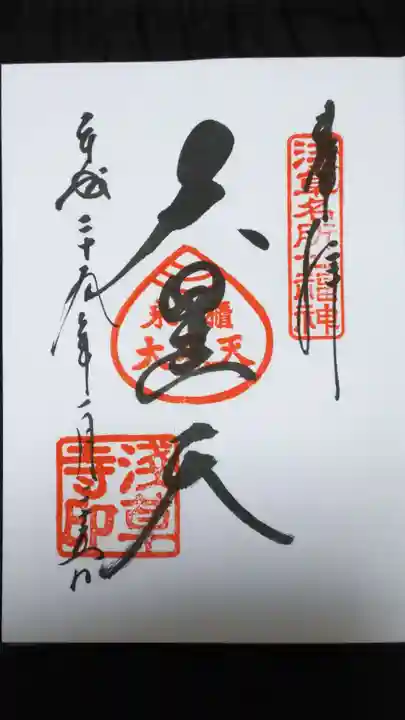 奉拝
浅草名所七福神
大黒天
米櫃
大黒天
平成二十九年一月二十五日
淺草
寺印